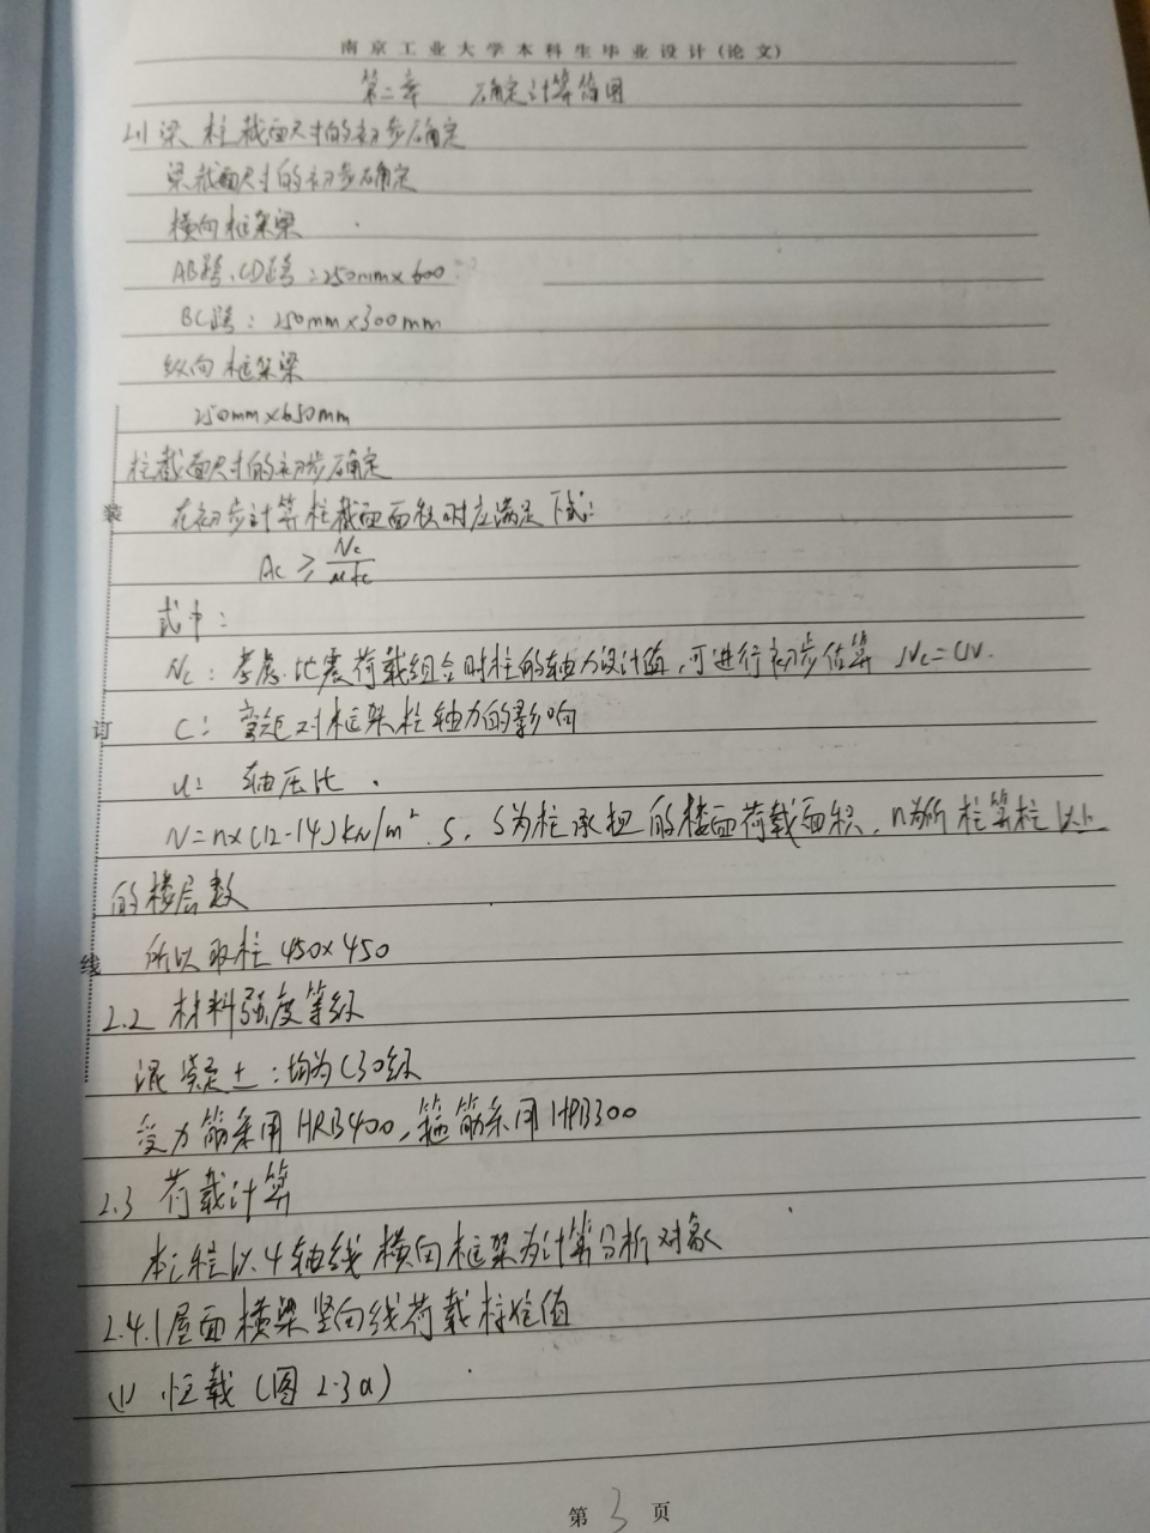 南京工业大学本科生毕业设计(论文)
第二章 确定计算简图
2.1 梁、柱截面尺寸的初步确定
梁截面尺寸的初步确定
横向框架梁
AB跨、CD跨:250mm×600
BC跨: 250mm×300mm
纵向框架梁
250mm×650mm
柱截面尺寸的初步确定
在初步计算柱截面面积时应满足下式:
Ac ≥ Nc/ufc
式中:
Nc: 考虑地震荷载组合时柱的轴力设计值,可进行初步估算 Nc=CN.
C: 弯矩对框架柱轴力的影响
u: 轴压比.
N=n×(12-14)kN/m².S, S为柱承担的楼面荷载面积, n为所柱算柱以上
的楼层数
所以取柱450×450
2.2 材料强度等级
混凝土:均为C30级
受力筋采用HRB400,箍筋采用HPB300
2.3 荷载计算
本工程以4轴线横向框架为计算分析对象
2.4.1屋面横梁竖向线荷载标准值
(1) 恒载(图2-3a)
装
订
线
第3页